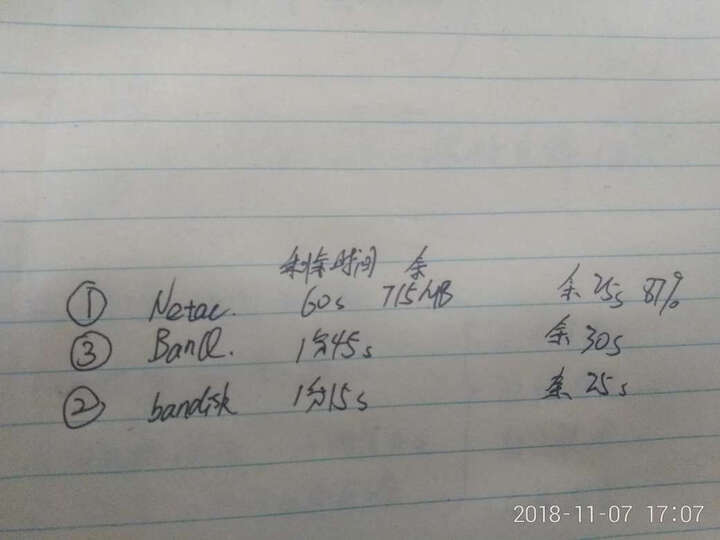 剩余时间 余
① Netac. 60s 715MB 余 25s 87%
③ BanQ. 1分45s 余 30s
② bandisk 1分15s 余 25s
2018-11-07 17:07